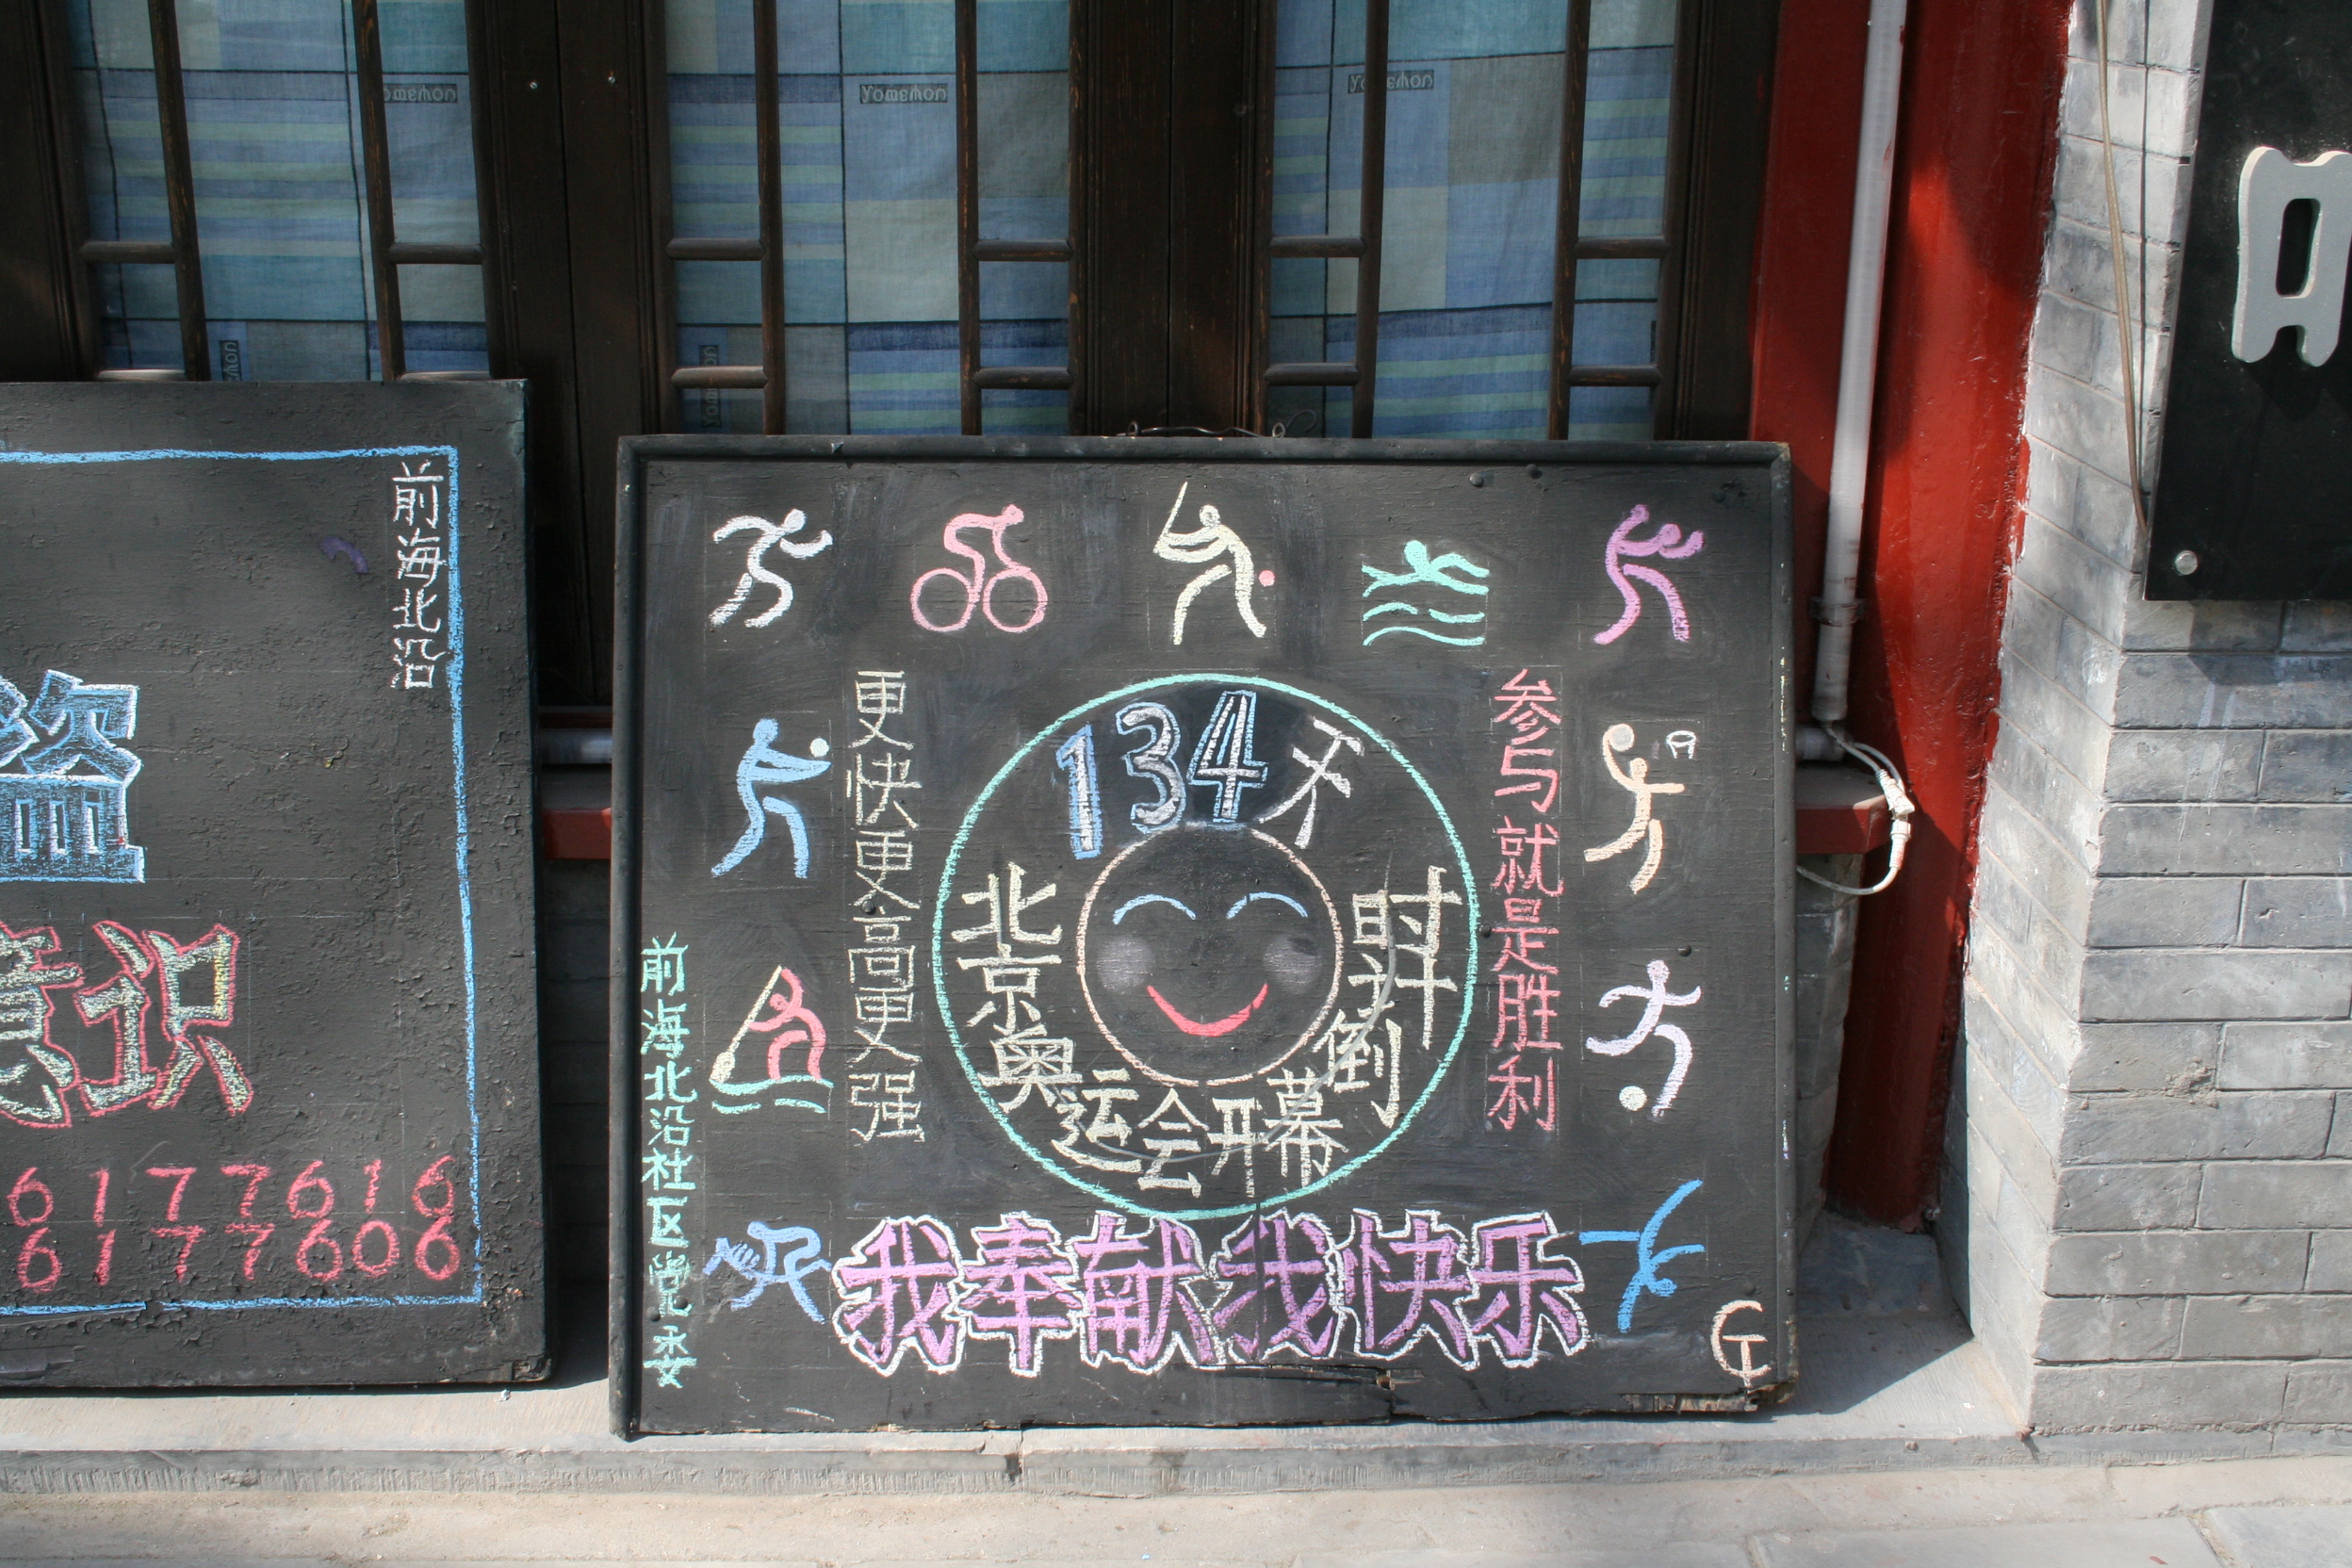 yomemon
yomemon
yomemon
前海北沿
盗
意识
6177616
6177606
134天
北京奥运会开幕倒时
更快更高更强
参与就是胜利
前海北沿社区党支
我奉献我快乐